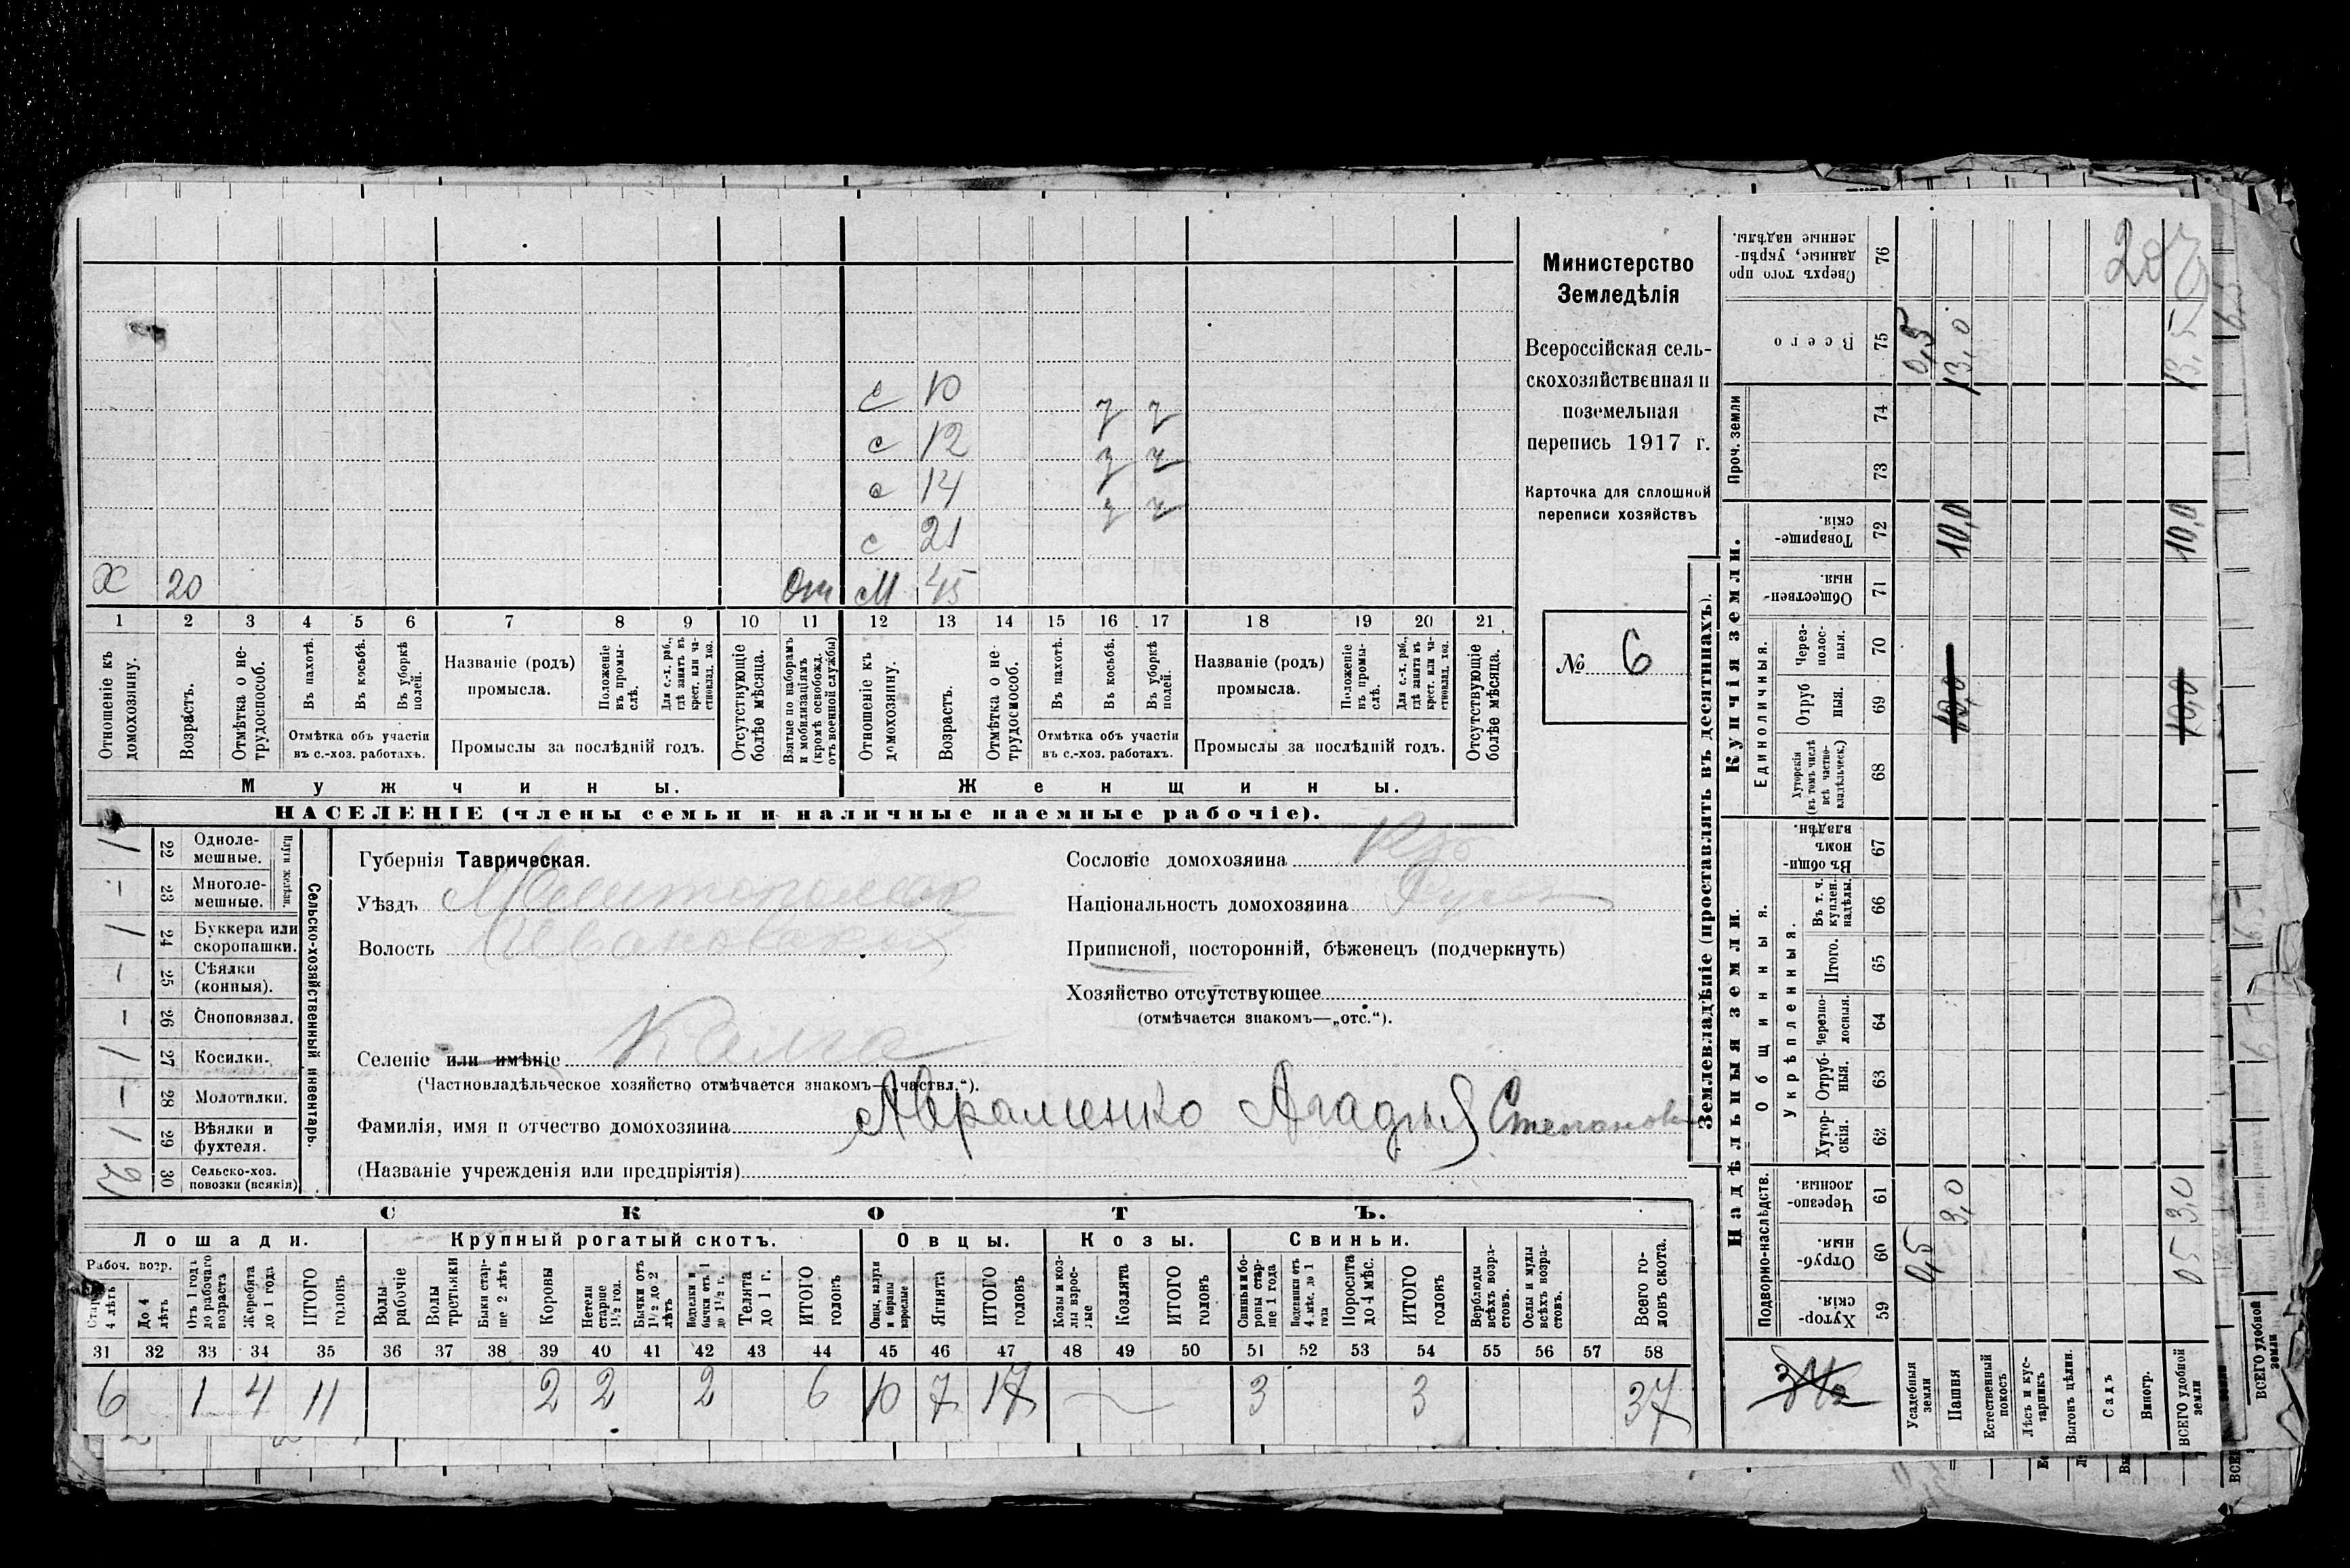 Министерство
Земледѣлія
Всероссійская сель-
скохозяйственная и
поземельная
перепись 1917 г.
Карточка для сплошной
переписи хозяйствъ
№ 6
с 10
с 12 ч ч
с 14 ч ч
с 21 ч ч
Х 20 От М 45
1 2 3 4 5 6 7 8 9 10 11 12 13 14 15 16 17 18 19 20 21
Отношеніе къ домохозяину.
Возрастъ.
Отмѣтка о не-трудоспособ.
Въ пахотѣ.
Въ косьбѣ.
Въ уборкѣ полей.
Отмѣтка объ участіи въ с.-хоз. работахъ.
Названіе (родъ) промысла.
Положеніе въ промы-слѣ.
Для с.-х. раб., гдѣ занятъ въ крест. или ча-стновлад. хоз.
Промыслы за послѣдній годъ.
Отсутствующіе болѣе мѣсяца.
Взятые по наборамъ и мобилизаціямъ (кромѣ освобожд. отъ военной службы)
Отношеніе къ домохозяину.
Возрастъ.
Отмѣтка о не-трудоспособ.
Въ пахотѣ.
Въ косьбѣ.
Въ уборкѣ полей.
Отмѣтка объ участіи въ с.-хоз. работахъ.
Названіе (родъ) промысла.
Положеніе въ промы-слѣ.
Для с.-х. раб., гдѣ занята въ крест. или ча-стновлад. хоз.
Промыслы за послѣдній годъ.
Отсутствующіе болѣе мѣсяца.
Мужчины. Женщины.
НАСЕЛЕНІЕ (члены семьи и наличные наемные рабочіе).
Сельско-хозяйственный инвентарь.
Плуги желѣзн.
1 22 Одноле-мешные.
– 23 Многоле-мешные.
1 24 Буккера или скоропашки.
– 25 Сѣялки (конныя).
– 26 Сноповязал.
1 27 Косилки.
– 28 Молотилки.
1 29 Вѣялки и фухтеля.
2 30 Сельско-хоз. повозки (всякія)
Губернія Таврическая.
Уѣздъ Мелитопольск
Волость Ивановская
Селеніе или имѣніе Калга
(Частновладѣльческое хозяйство отмѣчается знакомъ—„частвл.“).
Фамилія, имя и отчество домохозяина Авраменко Агафья Степанов
(Названіе учрежденія или предпріятія)
Сословіе домохозяина
Національность домохозяина Русск
Приписной, посторонній, бѣженецъ (подчеркнуть)
Хозяйство отсутствующее
(отмѣчается знакомъ—„отс.“).
СКОТЪ.
Лошади. Крупный рогатый скотъ. Овцы. Козы. Свиньи.
Рабоч. возр.
Старше 4 лѣтъ
До 4 лѣтъ
Отъ 1 года до рабочаго возраста
Жеребята до 1 года
ИТОГО головъ
Волы рабочіе
Волы третьяки
Быки стар-ше 2 лѣтъ
Коровы
Нетели старше 1½ год.
Бычки отъ 1½ до 2 лѣтъ
Нетелки и бычки отъ 1 до 1½ г.
Телята до 1 г.
ИТОГО головъ
Овцы, валухи и бараны взрослые
Ягнята
ИТОГО головъ
Козы и коз-лы взрос-лые
Козлята
ИТОГО головъ
Свиньи и бо-ровы стар-ше 1 года
Подсвинки отъ 4 мѣс. до 1 года
Поросята до 4 мѣс.
ИТОГО головъ
Верблюды всѣхъ возра-стовъ.
Ослы и мулы всѣхъ возра-стовъ.
Всего го-ловъ скота.
31 32 33 34 35 36 37 38 39 40 41 42 43 44 45 46 47 48 49 50 51 52 53 54 55 56 57 58
6 1 4 11 2 2 2 6 10 7 17 — 3 3 37
Землевладѣніе (проставлять въ десятинахъ).
Купчія земли.
Надѣльныя земли.
Сверхъ того про-данные, укрѣп-ленные надѣлы. 76
Всего 75 0,5 13,0 13,5
Проч. земли 74 73
Товарище-скія. 72 10,0 10,0
Обществен-ныя. 71
Единоличныя.
Через-полос-ныя. 70
Отруб ныя. 69 10,0 10,0
Хуторскія (въ томъ числѣ всѣ частно-владѣльческ.) 68
Общинныя.
Въ общи-номъ владѣн. 67
Укрѣпленныя.
Въ т. ч. куплен. надѣлы. 66
Итого. 65
Черезпо-лосныя. 64
Отруб-ныя. 63
Хутор-скія. 62
Подворно-наслѣдств.
Черезпо-лосныя. 61 3,0 3,0
Отруб-ныя. 60 0,5 05
Хутор-скія. 59
Усадебныя земли
Пашня
Естественный покосъ
Лѣсъ и кус-тарникъ
Выгонъ цѣлин.
Садъ
Виногр.
ВСЕГО удобной земли
ВСЕГО удобной земли